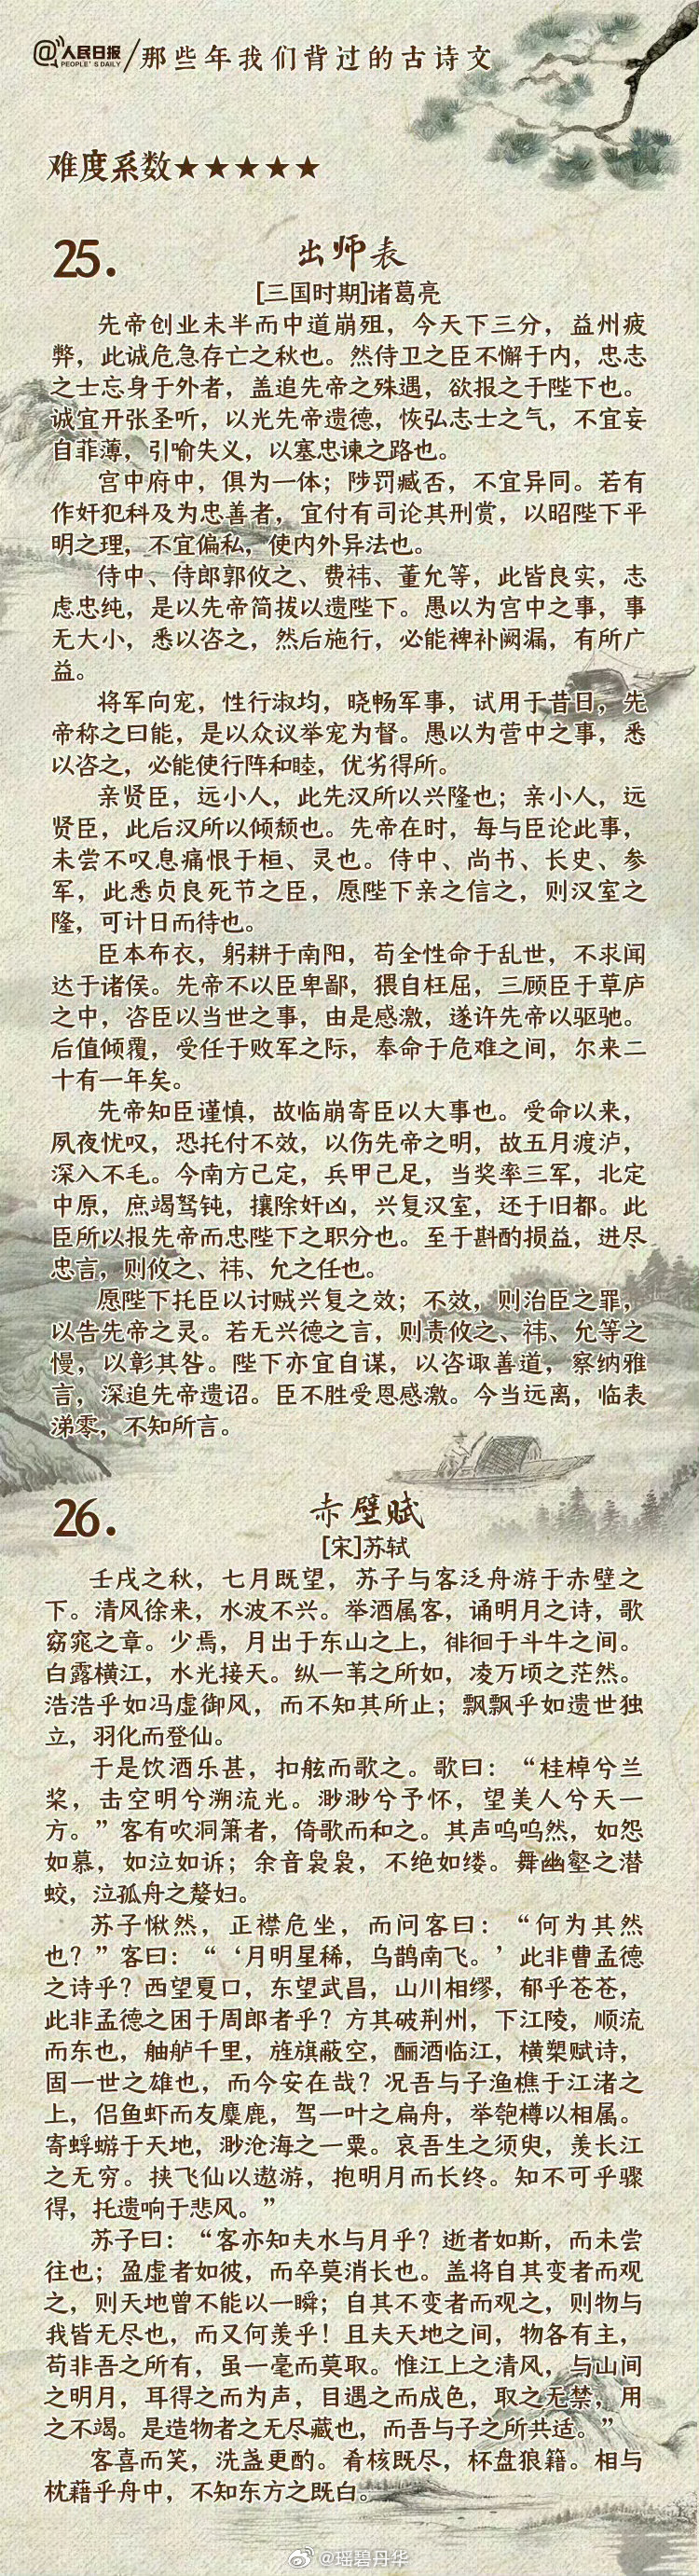 人民日报
PEOPLE'S DAILY
那些年我们背过的古诗文
难度系数★★★★★
25.
出师表
[三国时期]诸葛亮
先帝创业未半而中道崩殂，今天下三分，益州疲
弊，此诚危急存亡之秋也。然侍卫之臣不懈于内，忠志
之士忘身于外者，盖追先帝之殊遇，欲报之于陛下也。
诚宜开张圣听，以光先帝遗德，恢弘志士之气，不宜妄
自菲薄，引喻失义，以塞忠谏之路也。
宫中府中，俱为一体；陟罚臧否，不宜异同。若有
作奸犯科及为忠善者，宜付有司论其刑赏，以昭陛下平
明之理，不宜偏私，使内外异法也。
侍中、侍郎郭攸之、费祎、董允等，此皆良实，志
虑忠纯，是以先帝简拔以遗陛下。愚以为宫中之事，事
无大小，悉以咨之，然后施行，必能裨补阙漏，有所广
益。
将军向宠，性行淑均，晓畅军事，试用于昔日，先
帝称之曰能，是以众议举宠为督。愚以为营中之事，悉
以咨之，必能使行阵和睦，优劣得所。
亲贤臣，远小人，此先汉所以兴隆也；亲小人，远
贤臣，此后汉所以倾颓也。先帝在时，每与臣论此事，
未尝不叹息痛恨于桓、灵也。侍中、尚书、长史、参
军，此悉贞良死节之臣，愿陛下亲之信之，则汉室之
隆，可计日而待也。
臣本布衣，躬耕于南阳，苟全性命于乱世，不求闻
达于诸侯。先帝不以臣卑鄙，猥自枉屈，三顾臣于草庐
之中，咨臣以当世之事，由是感激，遂许先帝以驱驰。
后值倾覆，受任于败军之际，奉命于危难之间，尔来二
十有一年矣。
先帝知臣谨慎，故临崩寄臣以大事也。受命以来，
夙夜忧叹，恐托付不效，以伤先帝之明，故五月渡泸，
深入不毛。今南方已定，兵甲已足，当奖率三军，北定
中原，庶竭驽钝，攘除奸凶，兴复汉室，还于旧都。此
臣所以报先帝而忠陛下之职分也。至于斟酌损益，进尽
忠言，则攸之、祎、允之任也。
愿陛下托臣以讨贼兴复之效；不效，则治臣之罪，
以告先帝之灵。若无兴德之言，则责攸之、祎、允等之
慢，以彰其咎。陛下亦宜自谋，以咨诹善道，察纳雅
言，深追先帝遗诏。臣不胜受恩感激。今当远离，临表
涕零，不知所言。
26.
赤壁赋
[宋]苏轼
壬戌之秋，七月既望，苏子与客泛舟游于赤壁之
下。清风徐来，水波不兴。举酒属客，诵明月之诗，歌
窈窕之章。少焉，月出于东山之上，徘徊于斗牛之间。
白露横江，水光接天。纵一苇之所如，凌万顷之茫然。
浩浩乎如冯虚御风，而不知其所止；飘飘乎如遗世独
立，羽化而登仙。
于是饮酒乐甚，扣舷而歌之。歌曰：“桂棹兮兰
桨，击空明兮溯流光。渺渺兮予怀，望美人兮天一
方。”客有吹洞箫者，倚歌而和之。其声呜呜然，如怨
如慕，如泣如诉；余音袅袅，不绝如缕。舞幽壑之潜
蛟，泣孤舟之嫠妇。
苏子愀然，正襟危坐，而问客曰：“何为其然
也？”客曰：“‘月明星稀，乌鹊南飞。’此非曹孟德
之诗乎？西望夏口，东望武昌，山川相缪，郁乎苍苍，
此非孟德之困于周郎者乎？方其破荆州，下江陵，顺流
而东也，舳舻千里，旌旗蔽空，酾酒临江，横槊赋诗，
固一世之雄也，而今安在哉？况吾与子渔樵于江渚之
上，侣鱼虾而友麋鹿，驾一叶之扁舟，举匏樽以相属。
寄蜉蝣于天地，渺沧海之一粟。哀吾生之须臾，羡长江
之无穷。挟飞仙以遨游，抱明月而长终。知不可乎骤
得，托遗响于悲风。”
苏子曰：“客亦知夫水与月乎？逝者如斯，而未尝
往也；盈虚者如彼，而卒莫消长也。盖将自其变者而观
之，则天地曾不能以一瞬；自其不变者而观之，则物与
我皆无尽也，而又何羡乎！且夫天地之间，物各有主，
苟非吾之所有，虽一毫而莫取。惟江上之清风，与山间
之明月，耳得之而为声，目遇之而成色，取之无禁，用
之不竭。是造物者之无尽藏也，而吾与子之所共适。”
客喜而笑，洗盏更酌。肴核既尽，杯盘狼籍。相与
枕藉乎舟中，不知东方之既白。
@瑶碧丹华